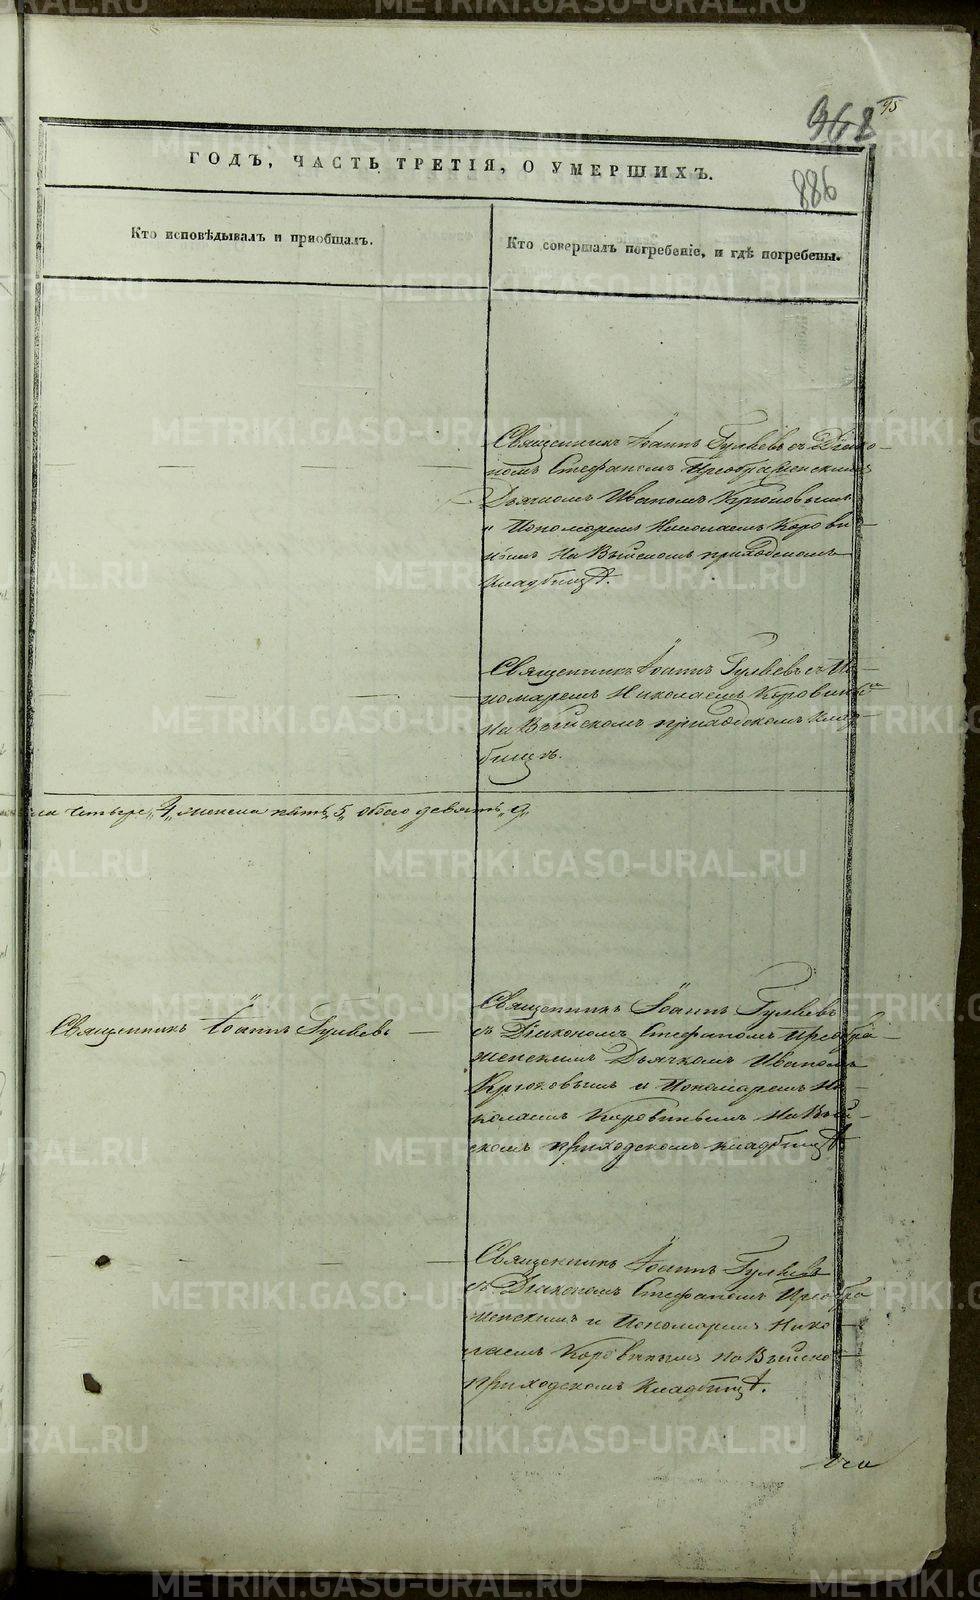 95
368
ГОДЪ, ЧАСТЬ ТРЕТІЯ, О УМЕРШИХЪ.
886
Кто исповѣдывалъ и пріобщалъ.
Кто совершалъ погребеніе, и гдѣ погребены.
Священникъ Іоаннъ Гуляевъ съ Діако-
номъ Стефаномъ Преображенскимъ
Дьячкомъ Иваномъ Крюковымъ
и Пономаремъ Николаемъ Корови-
нымъ на Выйскомъ приходскомъ
кладбищѣ.
Священникъ Іоаннъ Гуляевъ съ По-
номаремъ Николаемъ Коровинымъ
на Выйскомъ приходскомъ клад-
бищѣ.
четыре „4„ женска пять „5„ обоего девять „9„
Священникъ Іоаннъ Гуляевъ
Священникъ Іоаннъ Гуляевъ
съ Діакономъ Стефаномъ Преобра-
женскимъ Дьячкомъ Иваномъ
Крюковымъ и Пономаремъ Ни-
колаемъ Коровинымъ на Вый-
скомъ приходскомъ кладбищѣ
Священникъ Іоаннъ Гуляевъ
съ Діакономъ Стефаномъ Преобра
женскимъ и Пономаремъ Нико-
лаемъ Коровинымъ на Выйско-
приходскомъ кладбищѣ.
METRIKI.GASO-URAL.RU